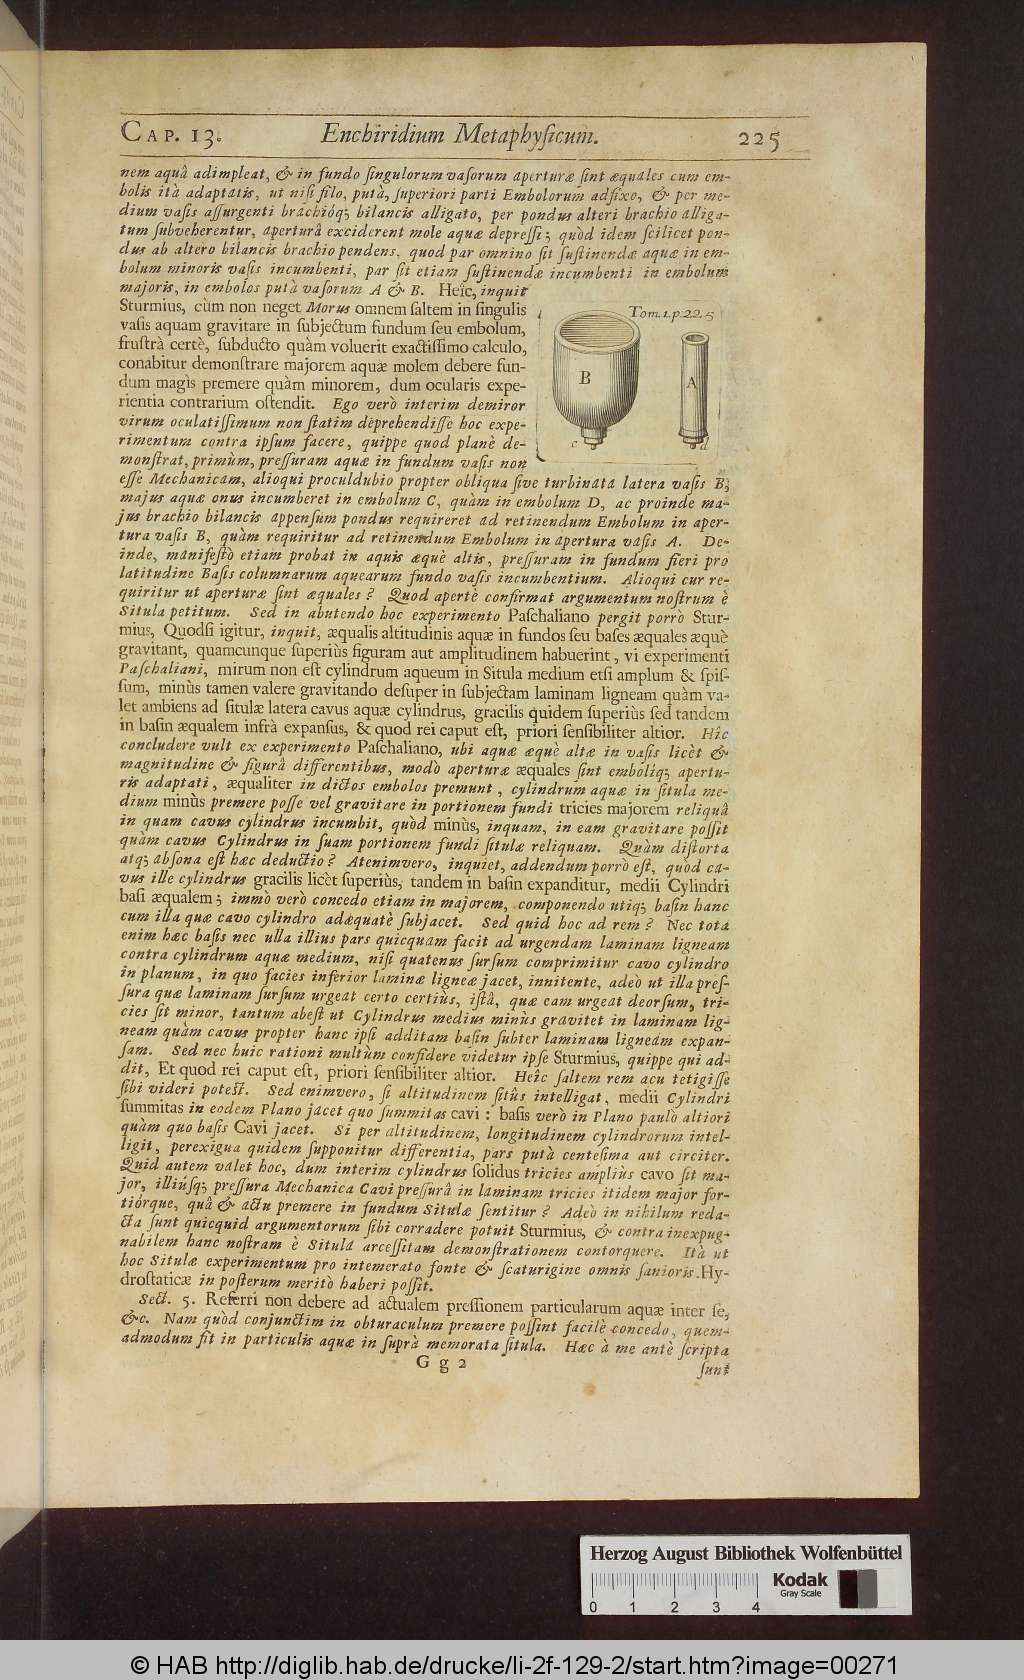 CAP. 13. Enchiridium Metaphysicum. 225
nem aquâ adimpleat, & in fundo ſingulorum vaſorum aperturæ ſint æquales cum em-
bolis ità adaptatis, ut niſi filo, putà, ſuperiori parti Embolorum adfixo, & per me-
dium vaſis aſſurgenti brachióq; bilancis alligato, per pondus alteri brachio alliga-
tum ſubveherentur, aperturâ exciderent mole aquæ depreſſi; quòd idem ſcilicet pon-
dus ab altero bilancis brachio pendens, quod par omnino ſit ſuſtinendæ aquæ in em-
bolum minoris vaſis incumbenti, par ſit etiam ſuſtinendæ incumbenti in embolum
majoris, in embolos putà vaſorum A & B. Heîc, inquit
Sturmius, cùm non neget Morus omnem ſaltem in ſingulis
vaſis aquam gravitare in ſubjectum fundum ſeu embolum,
fruſtrà certè, ſubducto quàm voluerit exactiſſimo calculo,
conabitur demonſtrare majorem aquæ molem debere fun-
dum magìs premere quàm minorem, dum ocularis expe-
rientia contrarium oſtendit. Ego verò interim demiror
virum oculatiſſimum non ſtatim deprehendiſſe hoc expe-
rimentum contra ipſum facere, quippe quod planè de-
monſtrat, primùm, preſſuram aquæ in fundum vaſis non
Tom. 1. p. 225
B
A
c
d
eſſe Mechanicam, alioqui proculdubio propter obliqua ſive turbinata latera vaſis B,
majus aquæ onus incumberet in embolum C, quàm in embolum D, ac proinde ma-
jus brachio bilancis appenſum pondus requireret ad retinendum Embolum in aper-
tura vaſis B, quàm requiritur ad retinendum Embolum in apertura vaſis A. De-
inde, manifeſtò etiam probat in aquis æquè altis, preſſuram in fundum fieri pro
latitudine Baſis columnarum aquearum fundo vaſis incumbentium. Alioqui cur re-
quiritur ut aperturæ ſint æquales? Quod apertè confirmat argumentum noſtrum è
Situla petitum. Sed in abutendo hoc experimento Paſchaliano pergit porrò Stur-
mius, Quodſi igitur, inquit, æqualis altitudinis aquæ in fundos ſeu baſes æquales æquè
gravitant, quamcunque ſuperiùs figuram aut amplitudinem habuerint, vi experimenti
Paſchaliani, mirum non eſt cylindrum aqueum in Situla medium etſi amplum & ſpiſ-
ſum, minùs tamen valere gravitando deſuper in ſubjectam laminam ligneam quàm va-
let ambiens ad ſitulæ latera cavus aquæ cylindrus, gracilis quidem ſuperiùs ſed tandem
in baſin æqualem infrà expanſus, & quod rei caput eſt, priori ſenſibiliter altior. Hîc
concludere vult ex experimento Paſchaliano, ubi aquæ æquè altæ in vaſis licèt &
magnitudine & figurâ differentibus, modò aperturæ æquales ſint embolíq; apertu-
ris adaptati, æqualiter in dictos embolos premunt, cylindrum aquæ in ſitula me-
dium minùs premere poſſe vel gravitare in portionem fundi tricies majorem reliquâ
in quam cavus cylindrus incumbit, quòd minùs, inquam, in eam gravitare poſſit
quàm cavus Cylindrus in ſuam portionem fundi ſitulæ reliquam. Quàm diſtorta
atq; abſona eſt hæc deductio? Atenimvero, inquiet, addendum porrò eſt, quòd ca-
vus ille cylindrus gracilis licèt ſuperiùs, tandem in baſin expanditur, medii Cylindri
baſi æqualem; immò verò concedo etiam in majorem, componendo utiq; baſin hanc
cum illa quæ cavo cylindro adæquatè ſubjacet. Sed quid hoc ad rem? Nec tota
enim hæc baſis nec ulla illius pars quicquam facit ad urgendam laminam ligneam
contra cylindrum aquæ medium, niſi quatenus ſurſum comprimitur cavo cylindro
in planum, in quo facies inferior laminæ ligneæ jacet, innitente, adeò ut illa preſ-
ſura quæ laminam ſurſum urgeat certo certiùs, iſtâ, quæ eam urgeat deorſum, tri-
cies ſit minor, tantum abeſt ut Cylindrus medius minùs gravitet in laminam lig-
neam quàm cavus propter hanc ipſi additam baſin ſubter laminam ligneam expan-
ſam. Sed nec huic rationi multùm confidere videtur ipſe Sturmius, quippe qui ad-
dit, Et quod rei caput eſt, priori ſenſibiliter altior. Heîc ſaltem rem acu tetigiſſe
ſibi videri poteſt. Sed enimvero, ſi altitudinem ſitûs intelligat, medii Cylindri
ſummitas in eodem Plano jacet quo ſummitas cavi: baſis verò in Plano paulò altiori
quàm quo baſis Cavi jacet. Si per altitudinem, longitudinem cylindrorum intel-
ligit, perexigua quidem ſupponitur differentia, pars putà centeſima aut circiter.
Quid autem valet hoc, dum interim cylindrus ſolidus tricies ampliùs cavo ſit ma-
jor, illiúſq; preſſura Mechanica Cavi preſſurâ in laminam tricies itidem major for-
tiórque, quâ & actu premere in fundum Situlæ ſentitur? Adeò in nihilum reda-
cta ſunt quicquid argumentorum ſibi corradere potuit Sturmius, & contra inexpug-
nabilem hanc noſtram è Situlâ arceſſitam demonſtrationem contorquere. Ità ut
hoc Situlæ experimentum pro intemerato fonte & ſcaturigine omnis ſanioris Hy-
droſtaticæ in poſterum meritò haberi poſſit.
Sect. 5. Referri non debere ad actualem preſſionem particularum aquæ inter ſe,
&c. Nam quòd conjunctim in obturaculum premere poſſint facilè concedo, quem-
admodum fit in particulis aquæ in ſuprà memorata ſitula. Hæc à me antè ſcripta
G g 2
ſunt
Herzog August Bibliothek Wolfenbüttel
Kodak
Gray Scale
0 1 2 3 4
© HAB http://diglib.hab.de/drucke/li-2f-129-2/start.htm?image=00271